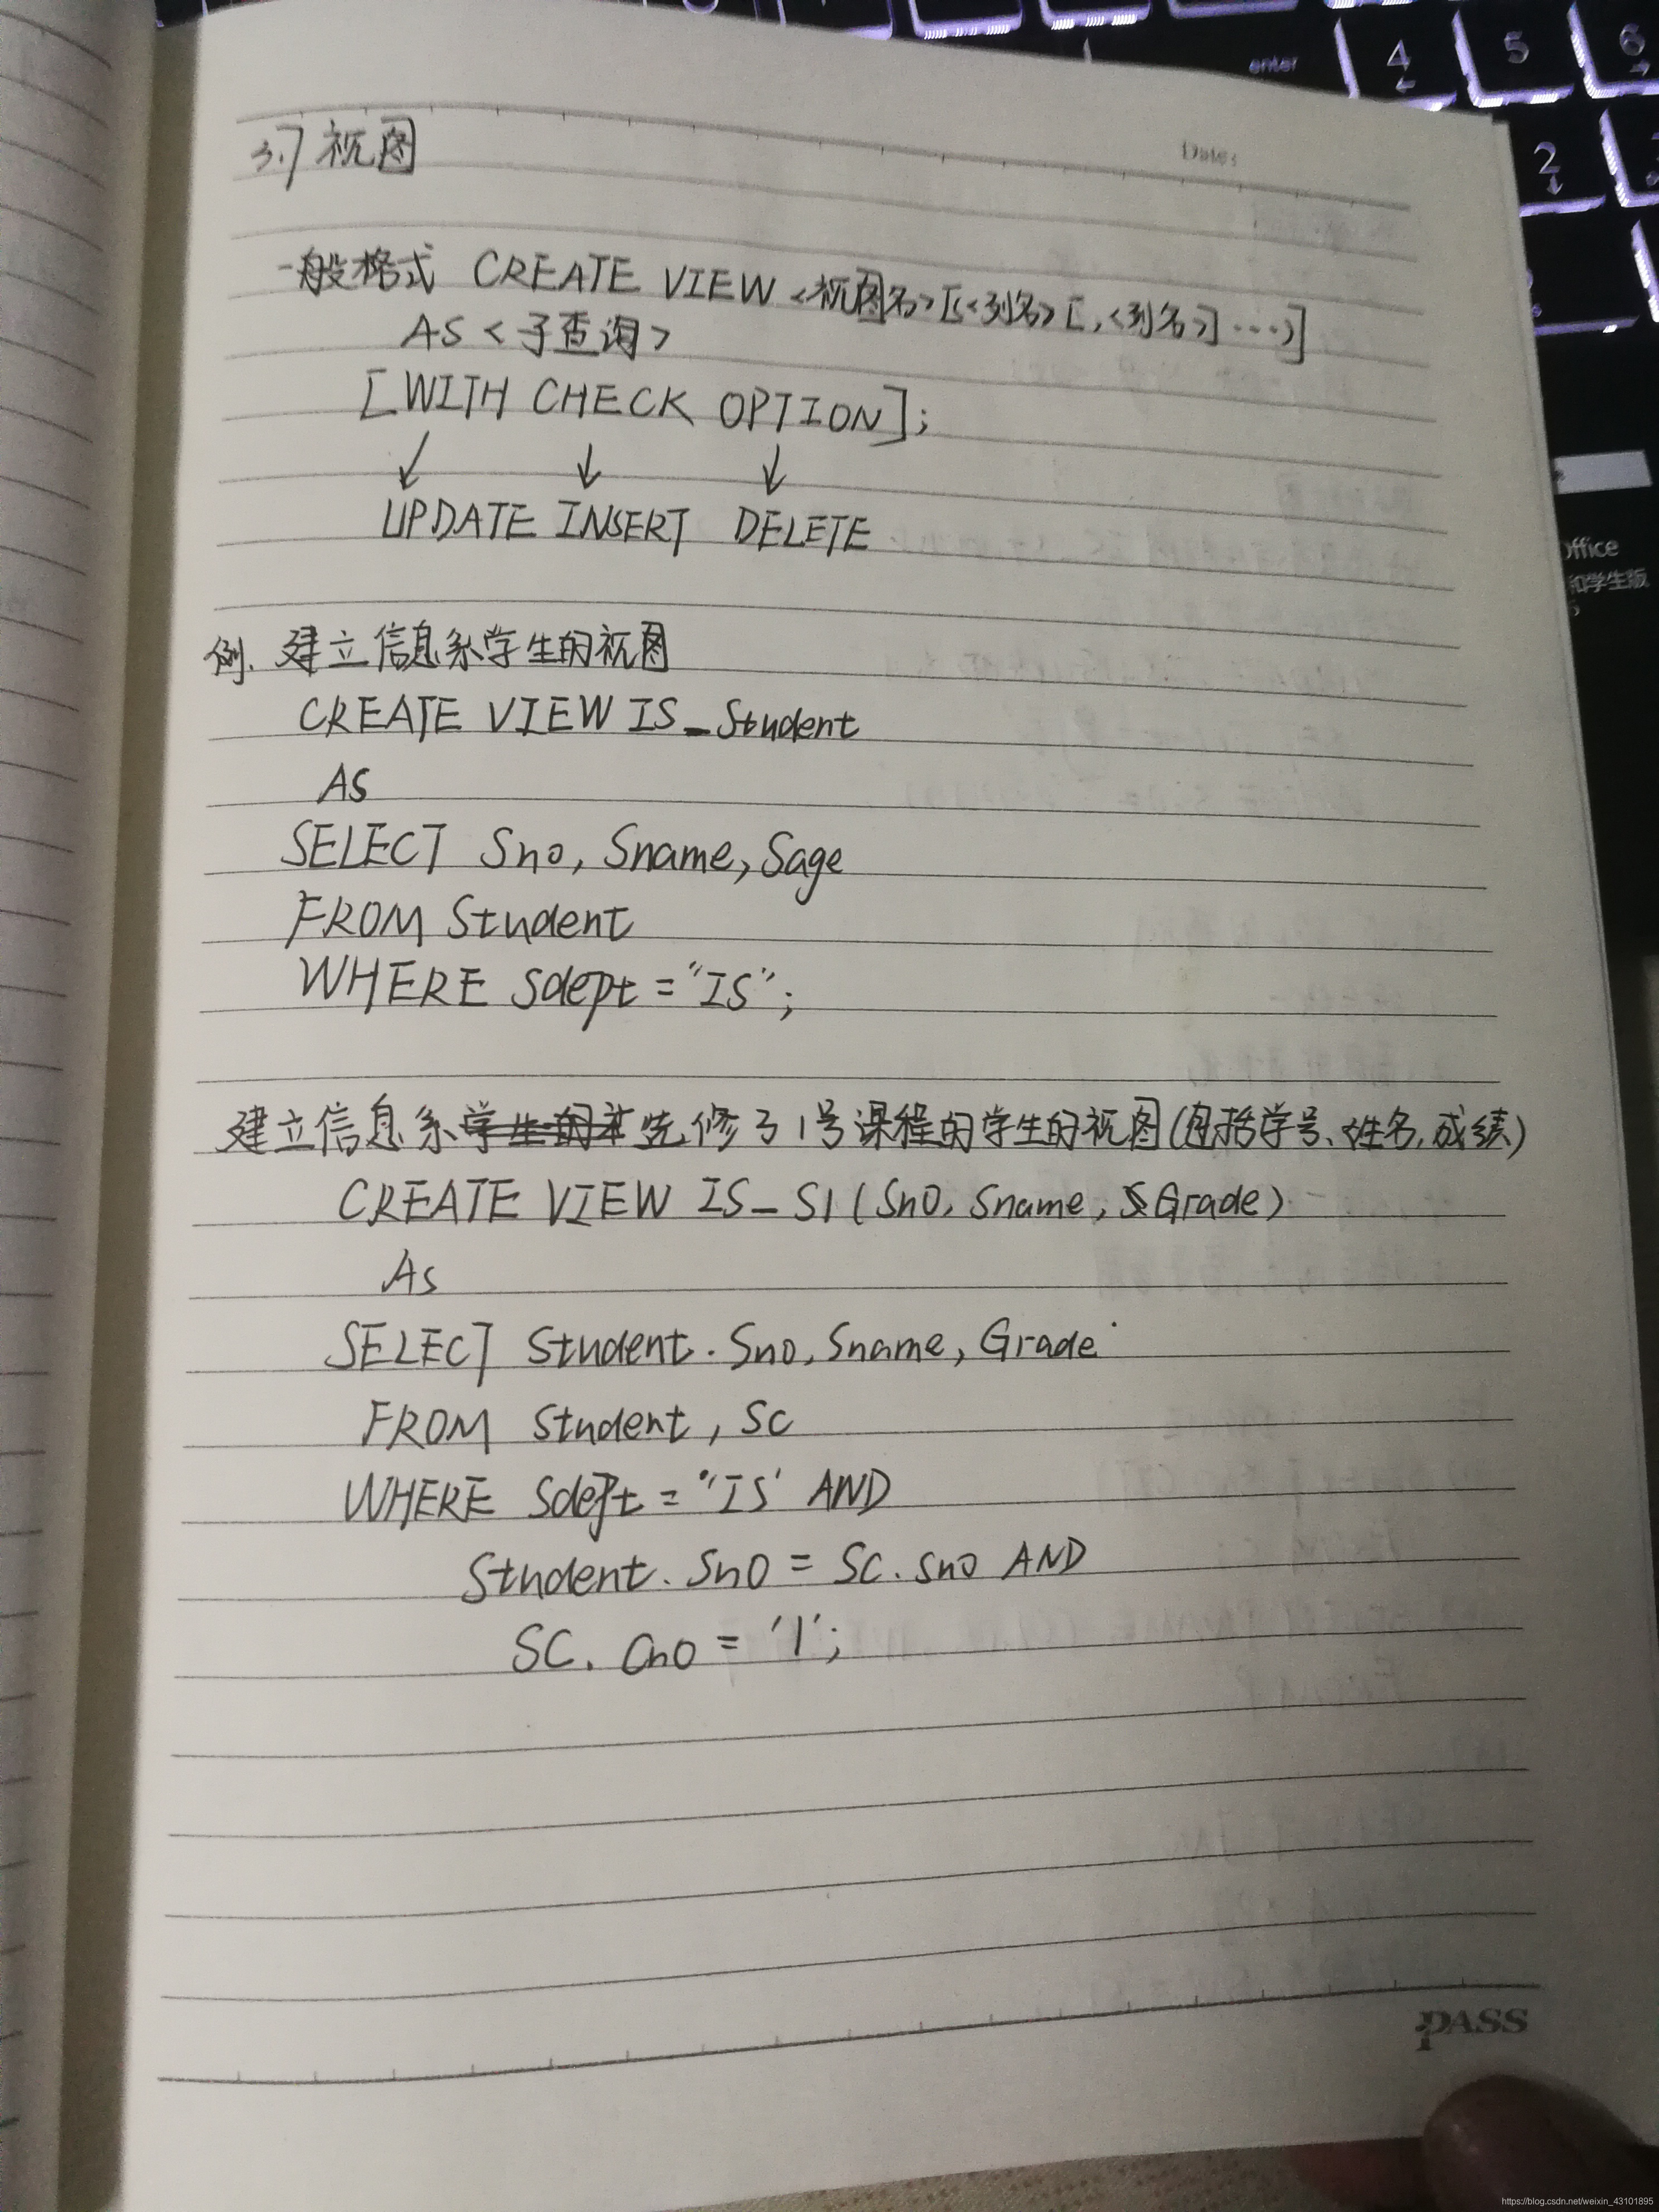 enter
4
5
6
2
Office
和学生版
Date:
3.7 视图
一般格式 CREATE VIEW <视图名>[(<列名>[,<列名>]···)]
AS <子查询>
[WITH CHECK OPTION];
↙ ↓ ↓
UPDATE INSERT DELETE
例. 建立信息系学生的视图
CREATE VIEW IS_Student
AS
SELECT Sno, Sname, Sage
FROM Student
WHERE Sdept = "IS";
建立信息系选修了1号课程的学生的视图(包括学号、姓名,成绩)
CREATE VIEW IS_S1 (Sno, Sname, Grade)
As
SELECT Student.Sno, Sname, Grade
FROM Student, SC
WHERE Sdept = "IS' AND
Student.Sno = SC.Sno AND
SC.Cno = '1';
PASS
https://blog.csdn.net/weixin_43101895